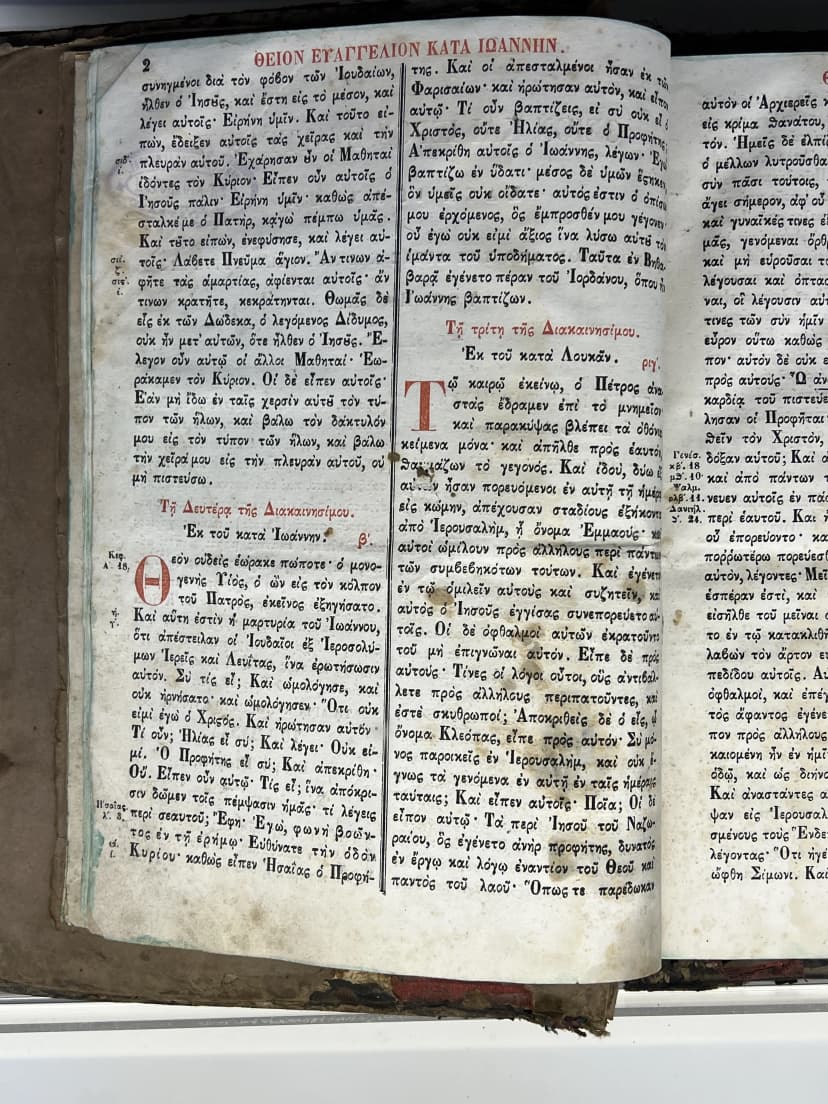 2
ΘΕΙΟΝ ΕΥΑΓΓΕΛΙΟΝ ΚΑΤΑ ΙΩΑΝΝΗΝ.
συνηγμένοι διὰ τὸν φόβον τῶν Ἰουδαίων,
ἦλθεν ὁ Ἰησοῦς, καὶ ἔστη εἰς τὸ μέσον, καὶ
λέγει αὐτοῖς· Εἰρήνη ὑμῖν. Καὶ τοῦτο εἰ-
πὼν, ἔδειξεν αὐτοῖς τὰς χεῖρας καὶ τὴν
πλευρὰν αὐτοῦ. Ἐχάρησαν ȣ̓ν οἱ Μαθηταὶ
ἰδόντες τὸν Κύριον· Εἶπεν οὖν αὐτοῖς ὁ
Ἰησοῦς πάλιν· Εἰρήνη ὑμῖν· καθὼς ἀπέ-
σταλκέ με ὁ Πατὴρ, κᾀγὼ πέμπω ὑμᾶς.
Καὶ τȣ͂το εἰπὼν, ἐνεφύσησε, καὶ λέγει αὐ-
τοῖς· Λάβετε Πνεῦμα ἅγιον. Ἄν τινων ἀ-
φῆτε τὰς ἁμαρτίας, ἀφίενται αὐτοῖς· ἄν
τινων κρατῆτε, κεκράτηνται. Θωμᾶς δὲ
εἷς ἐκ τῶν Δώδεκα, ὁ λεγόμενος Δίδυμος,
οὐκ ἦν μετ' αὐτῶν, ὅτε ἦλθεν ὁ Ἰησȣ͂ς. Ἔ-
λεγον οὖν αὐτῷ οἱ ἄλλοι Μαθηταί· Ἑω-
ράκαμεν τὸν Κύριον. Ὁ δὲ εἶπεν αὐτοῖς·
Ἐὰν μὴ ἴδω ἐν ταῖς χερσὶν αὐτȣ͂ τὸν τύ-
πον τῶν ἥλων, καὶ βάλω τὸν δάκτυλόν
μου εἰς τὸν τύπον τῶν ἥλων, καὶ βάλω
τὴν χεῖρά μου εἰς τὴν πλευρὰν αὐτοῦ, οὐ
μὴ πιστεύσω.
Τῇ Δευτέρᾳ τῆς Διακαινησίμου.
Ἐκ τοῦ κατὰ Ἰωάννην. β΄.
Κεφ.
Α. 18.
Θεὸν οὐδεὶς ἑώρακε πώποτε· ὁ μονο-
γενὴς Υἱὸς, ὁ ὢν εἰς τὸν κόλπον
τοῦ Πατρὸς, ἐκεῖνος ἐξηγήσατο.
Καὶ αὕτη ἐστὶν ἡ μαρτυρία τοῦ Ἰωάννου,
ὅτι ἀπέστειλαν οἱ Ἰουδαῖοι ἐξ Ἱεροσολύ-
μων Ἱερεῖς καὶ Λευΐτας, ἵνα ἐρωτήσωσιν
αὐτόν. Σὺ τίς εἶ; Καὶ ὡμολόγησε, καὶ
οὐκ ἠρνήσατο· καὶ ὡμολόγησεν· Ὅτι οὐκ
εἰμὶ ἐγὼ ὁ Χριστός. Καὶ ἠρώτησαν αὐτόν·
Τί οὖν; Ἠλίας εἶ σύ; Καὶ λέγει· Οὐκ εἰ-
μί. Ὁ Προφήτης εἶ σύ; Καὶ ἀπεκρίθη·
Οὔ. Εἶπον οὖν αὐτῷ· Τίς εἶ; ἵνα ἀπόκρι-
σιν δῶμεν τοῖς πέμψασιν ἡμᾶς· τί λέγεις
περὶ σεαυτοῦ; Ἔφη· Ἐγὼ, φωνὴ βοῶν-
τος ἐν τῇ ἐρήμῳ· Εὐθύνατε τὴν ὁδὸν
Κυρίου· καθὼς εἶπεν Ἡσαΐας ὁ Προφή-
της. Καὶ οἱ ἀπεσταλμένοι ἦσαν ἐκ τῶν
Φαρισαίων· καὶ ἠρώτησαν αὐτὸν, καὶ εἶπον
αὐτῷ· Τί οὖν βαπτίζεις, εἰ σὺ οὐκ εἶ ὁ
Χριστὸς, οὔτε Ἠλίας, οὔτε ὁ Προφήτης;
Ἀπεκρίθη αὐτοῖς ὁ Ἰωάννης, λέγων· Ἐγὼ
βαπτίζω ἐν ὕδατι· μέσος δὲ ὑμῶν ἕστηκεν
ὃν ὑμεῖς οὐκ οἴδατε· αὐτός ἐστιν ὁ ὀπίσω
μου ἐρχόμενος, ὃς ἔμπροσθέν μου γέγονεν·
οὗ ἐγὼ οὐκ εἰμὶ ἄξιος ἵνα λύσω αὐτȣ͂ τὸν
ἱμάντα τοῦ ὑποδήματος. Ταῦτα ἐν Βηθα-
βαρᾷ ἐγένετο πέραν τοῦ Ἰορδάνου, ὅπου ἦν
Ἰωάννης βαπτίζων.
Τῇ τρίτῃ τῆς Διακαινησίμου.
Ἐκ τοῦ κατὰ Λουκᾶν. ριγ΄.
Τῷ καιρῷ ἐκείνῳ, ὁ Πέτρος ἀνα-
στὰς ἔδραμεν ἐπὶ τὸ μνημεῖον·
καὶ παρακύψας βλέπει τὰ ὀθόνια
κείμενα μόνα· καὶ ἀπῆλθε πρὸς ἑαυτὸν,
θαυμάζων τὸ γεγονός. Καὶ ἰδοὺ, δύω ἐξ
αὐτῶν ἦσαν πορευόμενοι ἐν αὐτῇ τῇ ἡμέρᾳ
εἰς κώμην, ἀπέχουσαν σταδίους ἑξήκοντα
ἀπὸ Ἱερουσαλὴμ, ᾗ ὄνομα Ἐμμαούς· καὶ
αὐτοὶ ὡμίλουν πρὸς ἀλλήλους περὶ πάντων
τῶν συμβεβηκότων τούτων. Καὶ ἐγένετο
ἐν τῷ ὁμιλεῖν αὐτοὺς καὶ συζητεῖν, καὶ
αὐτὸς ὁ Ἰησοῦς ἐγγίσας συνεπορεύετο αὐ-
τοῖς. Οἱ δὲ ὀφθαλμοὶ αὐτῶν ἐκρατοῦντο
τοῦ μὴ ἐπιγνῶναι αὐτόν. Εἶπε δὲ πρὸς
αὐτούς· Τίνες οἱ λόγοι οὗτοι, οὓς ἀντιβάλ-
λετε πρὸς ἀλλήλους περιπατοῦντες, καὶ
ἐστὲ σκυθρωποί; Ἀποκριθεὶς δὲ ὁ εἷς, ᾧ
ὄνομα Κλεόπας, εἶπε πρὸς αὐτόν· Σὺ μό-
νος παροικεῖς ἐν Ἱερουσαλὴμ, καὶ οὐκ ἔ-
γνως τὰ γενόμενα ἐν αὐτῇ ἐν ταῖς ἡμέραις
ταύταις; Καὶ εἶπεν αὐτοῖς· Ποῖα; Οἱ δὲ
εἶπον αὐτῷ· Τὰ περὶ Ἰησοῦ τοῦ Ναζω-
ραίου, ὃς ἐγένετο ἀνὴρ προφήτης, δυνατὸς
ἐν ἔργῳ καὶ λόγῳ ἐναντίον τοῦ Θεοῦ καὶ
παντὸς τοῦ λαοῦ· Ὅπως τε παρέδωκαν
αὐτὸν οἱ Ἀρχιερεῖς
εἰς κρίμα θανάτου,
τόν. Ἡμεῖς δὲ ἐλπί
ὁ μέλλων λυτροῦσθα
σὺν πᾶσι τούτοις,
ἄγει σήμερον, ἀφ' οὗ
καὶ γυναῖκές τινες ἐ
μᾶς, γενόμεναι ὀρθ
καὶ μὴ εὑροῦσαι τὸ
λέγουσαι καὶ ὀπτασ
ναι, οἳ λέγουσιν αὐτ
τινες τῶν σὺν ἡμῖν
εὗρον οὕτω καθὼς
πον· αὐτὸν δὲ οὐκ ε
πρὸς αὐτούς· Ὦ ἀν
καρδίᾳ τοῦ πιστεύε
λησαν οἱ Προφῆται·
θεῖν τὸν Χριστὸν,
δόξαν αὐτοῦ; Καὶ ἀ
καὶ ἀπὸ πάντων τ
νευεν αὐτοῖς ἐν πάσ
περὶ ἑαυτοῦ. Καὶ ἤ
οὗ ἐπορεύοντο· κα
ποῤῥωτέρω πορεύεσθ
αὐτὸν, λέγοντες· Μεῖ
ἑσπέραν ἐστὶ, καὶ
εἰσῆλθε τοῦ μεῖναι σ
το ἐν τῷ κατακλιθῆ
λαβὼν τὸν ἄρτον ε
πεδίδου αὐτοῖς. Αὐ
ὀφθαλμοὶ, καὶ ἐπέγ
τὸς ἄφαντος ἐγένε
πον πρὸς ἀλλήλους
καιομένη ἦν ἐν ἡμῖ
ὁδῷ, καὶ ὡς διήνο
Καὶ ἀναστάντες α
ψαν εἰς Ἱερουσαλ
σμένους τοὺς Ἕνδε
λέγοντας· Ὅτι ἠγέ
ὤφθη Σίμωνι. Καὶ